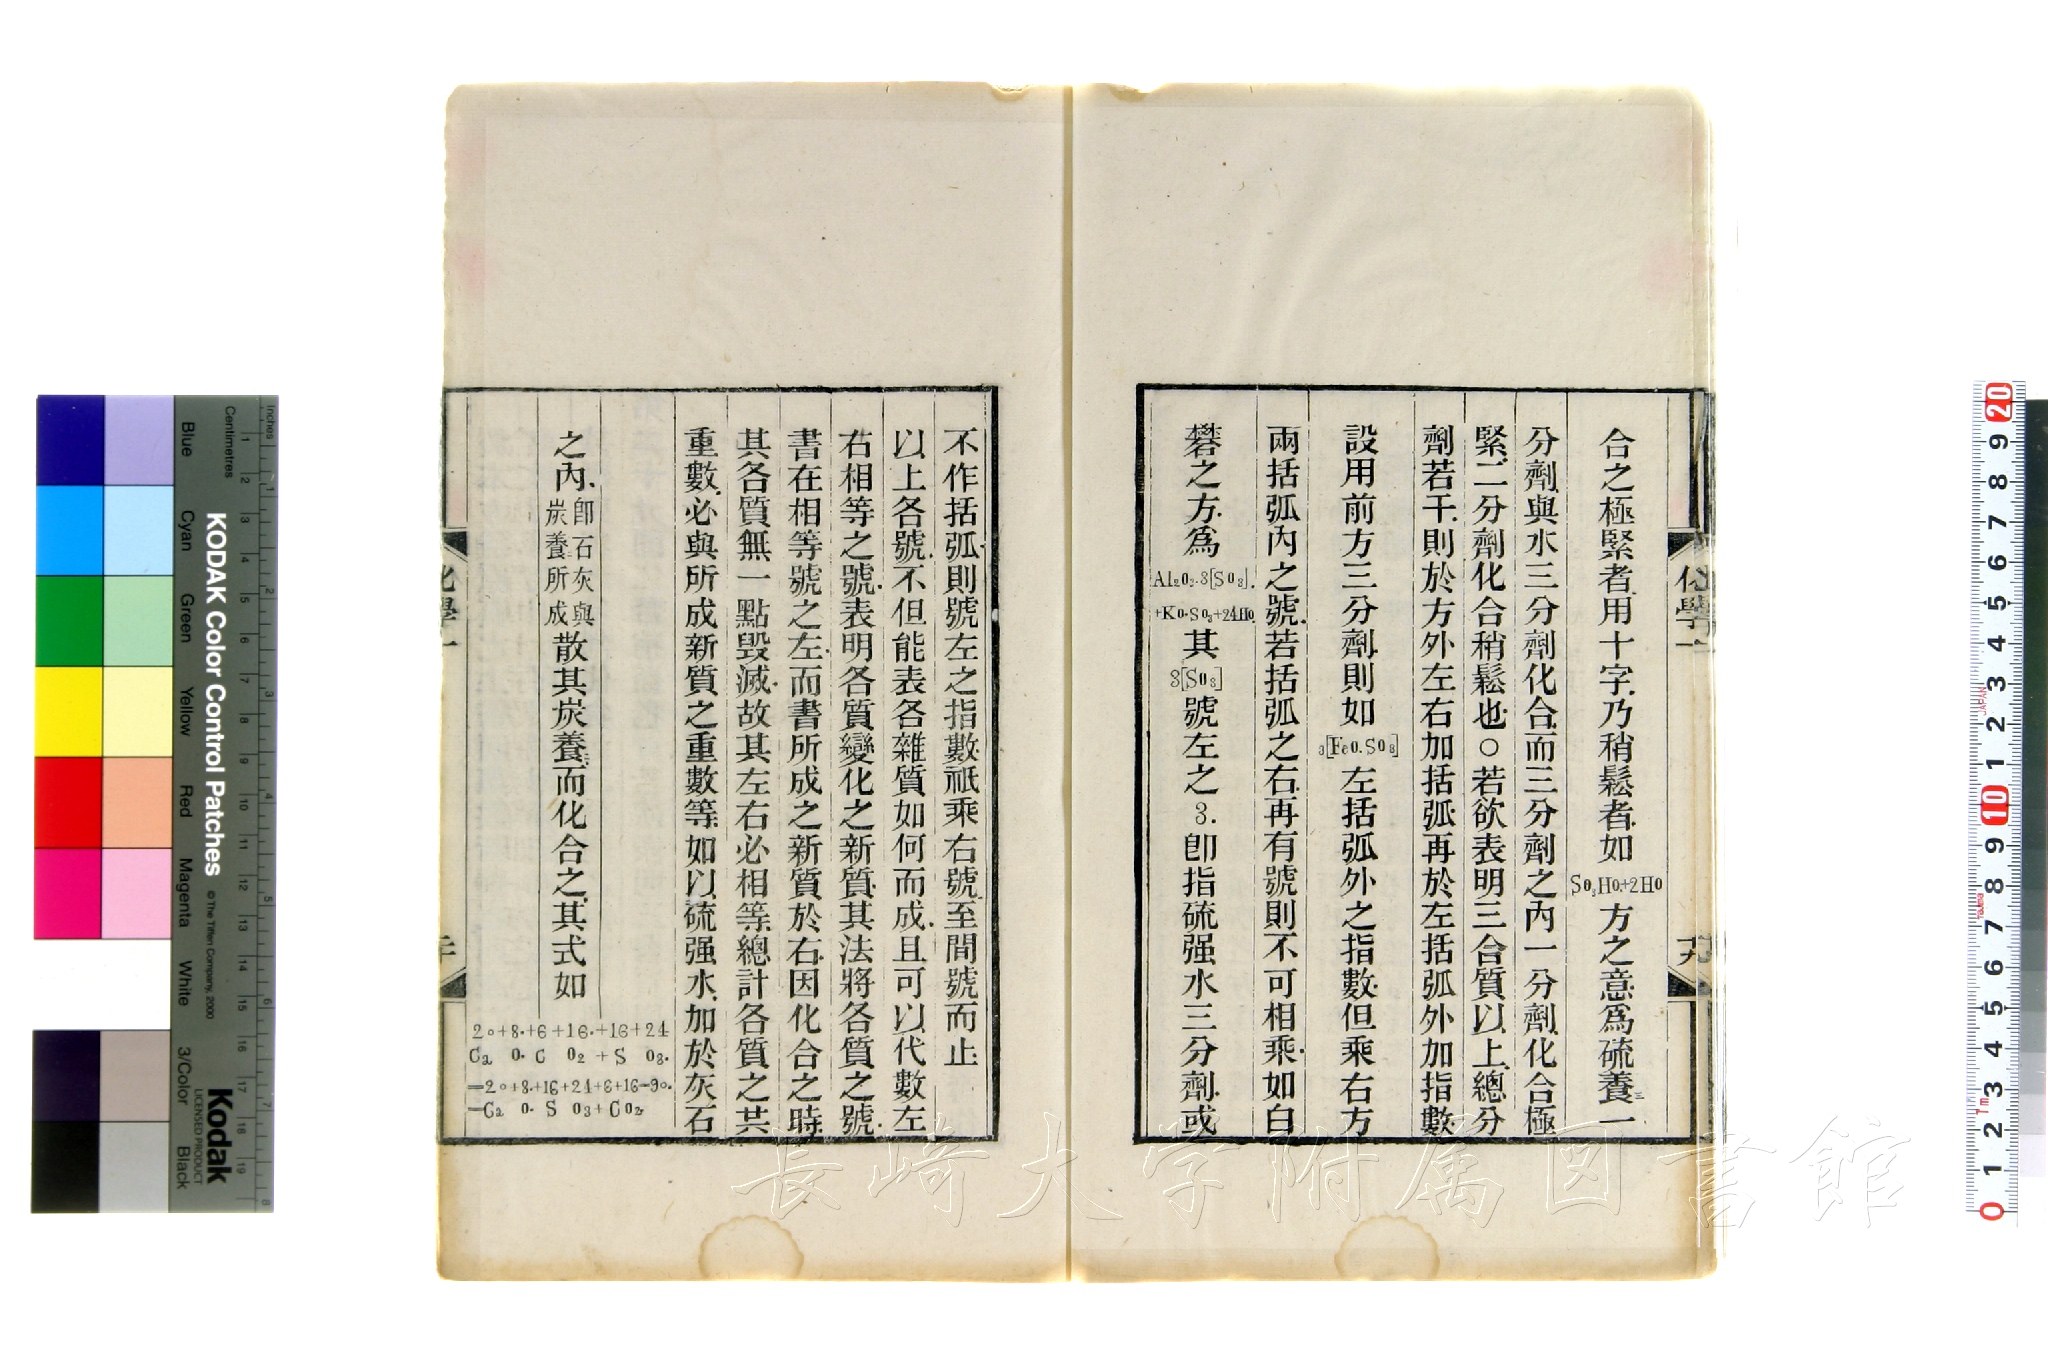 合之極緊者用十字乃稍鬆者如 So₃Ho.+2Ho 方之意爲硫養三一
分劑與水三分劑化合而三分劑之內一分劑化合極
緊二分劑化合稍鬆也○若欲表明三合質以上總分
劑若干則於方外左右加括弧再於左括弧外加指數
設用前方三分劑則如 3[Feo.So₃] 左括弧外之指數但乘右方
兩括弧內之號若括弧之右再有號則不可相乘如白
礬之方爲 Al₂o₂.3[So₃].+Ko.So₃+24Ho 其 3[So₃] 號左之 3. 卽指硫强水三分劑或
化學一
十九
不作括弧則號左之指數祇乘右號至間號而止
以上各號不但能表各雜質如何而成且可以代數左
右相等之號表明各質變化之新質其法將各質之號
書在相等號之左而書所成之新質於右因化合之時
其各質無一點毀滅故其左右必相等總計各質之共
重數必與所成新質之重數等如以硫强水加於灰石
之內卽石灰與炭養所成散其炭養而化合之其式如
20+8.+6+16.+16+24
Ca o. C o₂ + S o₃.
=20+8.+16+24+6+16=90.
=Ca o. S o₃+Co₂.
化學一
二十
長崎大学附属図書館
KODAK Color Control Patches
© The Tiffen Company, 2000
Kodak
LICENSED PRODUCT
Inches
Centimetres
Blue
Cyan
Green
Yellow
Red
Magenta
White
3/Color
Black
1 2 3 4 5 6 7 8
1 2 3 4 5 6 7 8 9 10 11 12 13 14 15 16 17 18 19
20 9 8 7 6 5 4 3 2 1 10 9 8 7 6 5 4 3 2 1 0
JAPAN
Tajima
1m